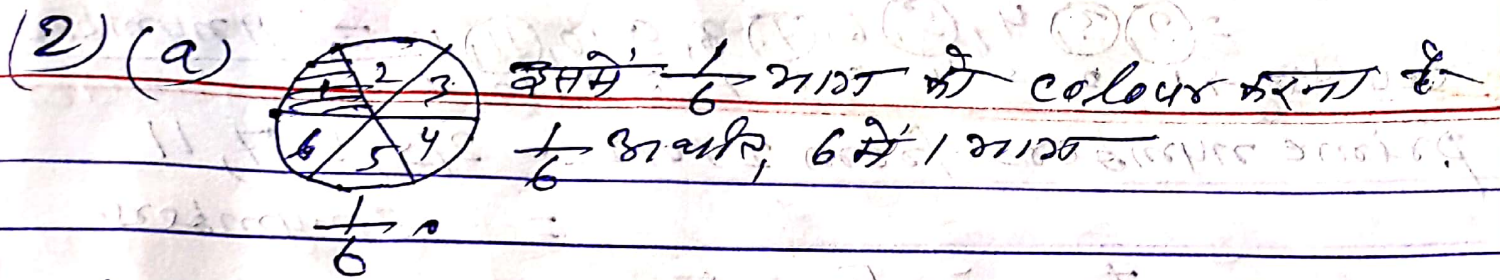 (2) (a) 1 2 3 4 5 6 इसमें 1/6 भाग को colour करना है
1/6 अर्थात, 6 में 1 भाग
1/6